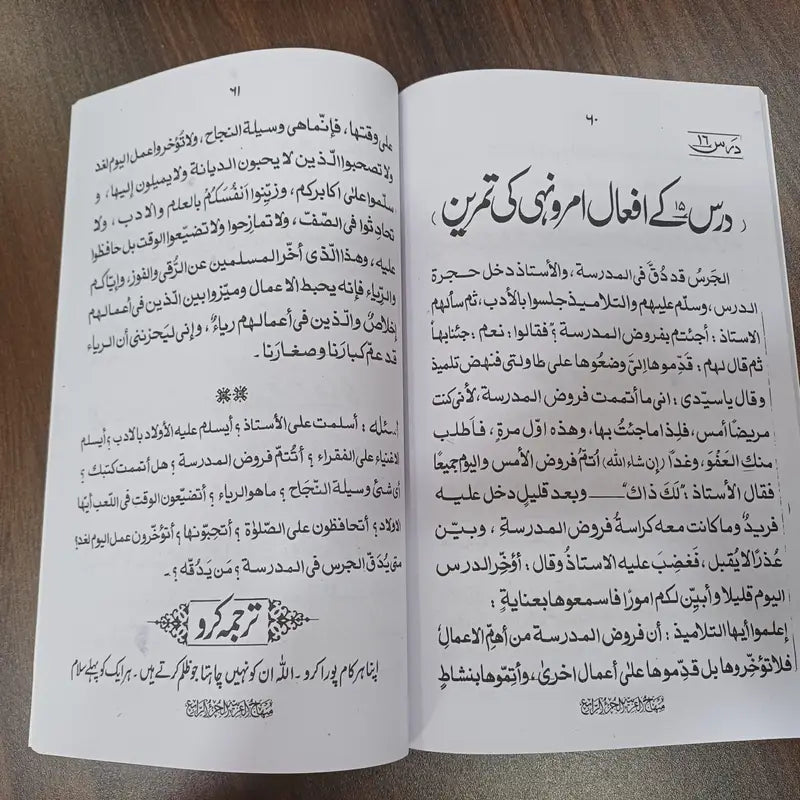 ۶۰
درس ۱۶
(درس ۱۵ کے افعال امر و نہی کی تمرین)
الجَرسُ قد دُقَّ فی المدرسة، والأستاذ دخل حجرة
الدرس، وسلّم علیہم والتلامیذ جلسوا بالأدب، ثم سألہم
الاستاذ: أجئتم بفروض المدرسة؟ فقالوا: نعم: جئنابہا
ثم قال لہم: قدِّموہا إلیَّ وضعُوہا علی طاولتی فنہض تلمیذ
وقال یا سیّدی: انی ما أتممت فروض المدرسة، لأنی کنت
مریضًا أمس، فلِذا ما جئتُ بہا، وھذہ اوّل مرةٍ، فأطلب
منك العَفْوَ، وغداً (إن شاء اللہ) أتمُّ فروض الأمس والیوم جمیعًا
فقال الأستاذ: "لَكَ ذاك" —— وبعد قلیلٍ دخل علیہ
فریدٌ وما کانت معہ کراسةُ فروض المدرسةِ، وبیّن
عُذرًا لا یُقبل، فَغضِبَ علیہ الاستاذُ وقال: أُؤخِّر الدرس
الیوم قلیلا وأبیِّن لکم امورًا فاسمعوہا بعنایةٍ:
إعلموا أیہا التلامیذ: أن فروض المدرسة من أھمِّ الاعمالِ
فلا تؤخِّروہا بل قدِّموہا علیٰ أعمال اخریٰ، وأتِمّوہا بنشاطٍ
منہاج العربیة الجزء الرابع
۶۱
علی وقتہا، فإنّماہی وسیلة النجاح، ولا تُؤخروا عمل الیوم لغد
ولا تصحبوا الّذین لا یحبون الدیانة ولا یمیلون إلیہا، و
سلّموا علیٰ اکابرکم، وزیِّنوا اَنفُسَکُم بالعلم والادب، ولا
تحادثوا فی الصّفّ، ولا تمازحوا ولا تضیّعوا الوقت بل حافظوا
علیہ، وھذا الّذی أخّر المسلمین عن الرُّقی والفوز، وإیّاکم
والرِّیاءَ فإنه یحبط الاعمال ومیّزوا بین الّذین فی أعمالہم
إخلاصٌ والّذین فی أعمالہم ریاءٌ، وإنی لیَحزننی أن الریاء
قد عمّ کبارَنا وصغارَنا۔
اسئلہ: أسلمت علی الأستاذ؟ أیسلم علیہ الأولاد بالادب؟ أیسلم
الاغنیاء علی الفقراء؟ أتُتمّ فروض المدرسة؟ ھل أتممت کتبك؟
أی شیٔ وسیلة النّجاح؟ ماھو الریاء؟ أتضیّعون الوقت فی اللّعب أیّہا
الاولاد؟ أتحافظون علی الصّلوٰة؟ أتحبّونہا؟ أتؤخّرون عمل الیوم لغد؟
متیٰ یُدَقّ الجرس فی المدرسة؟ مَن یَدُقّہ؟۔
ترجمہ کرو
اپنا ہر کام پورا کرو۔ اللہ ان کو نہیں چاہتا جو ظلم کرتے ہیں۔ ہر ایک کو پہلے سلام
منہاج العربیة الجزء الرابع